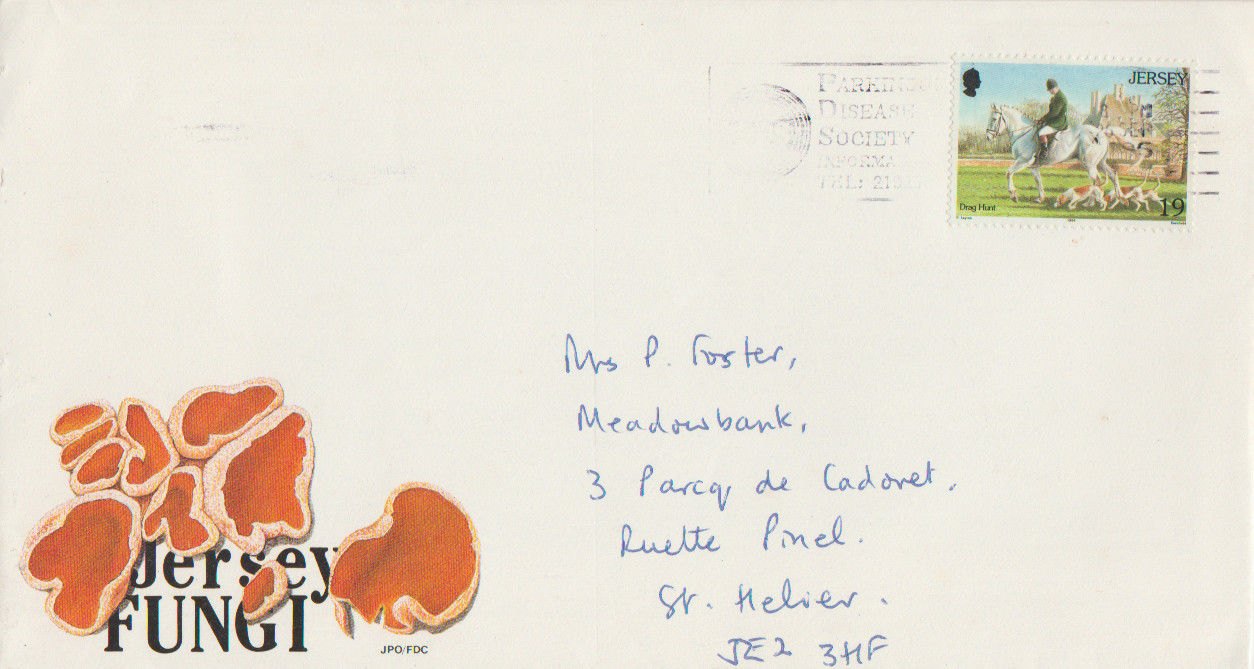 PARKINSO
DISEASE
SOCIETY
INFORMA
TEL:
JERSEY
Drag Hunt
19
Mrs P. Foster,
Meadowbank,
3 Parcq de Cadoret.
Ruette Pinel.
St. Helier.
JE2 3HF
Jersey
FUNGI
JPO/FDC